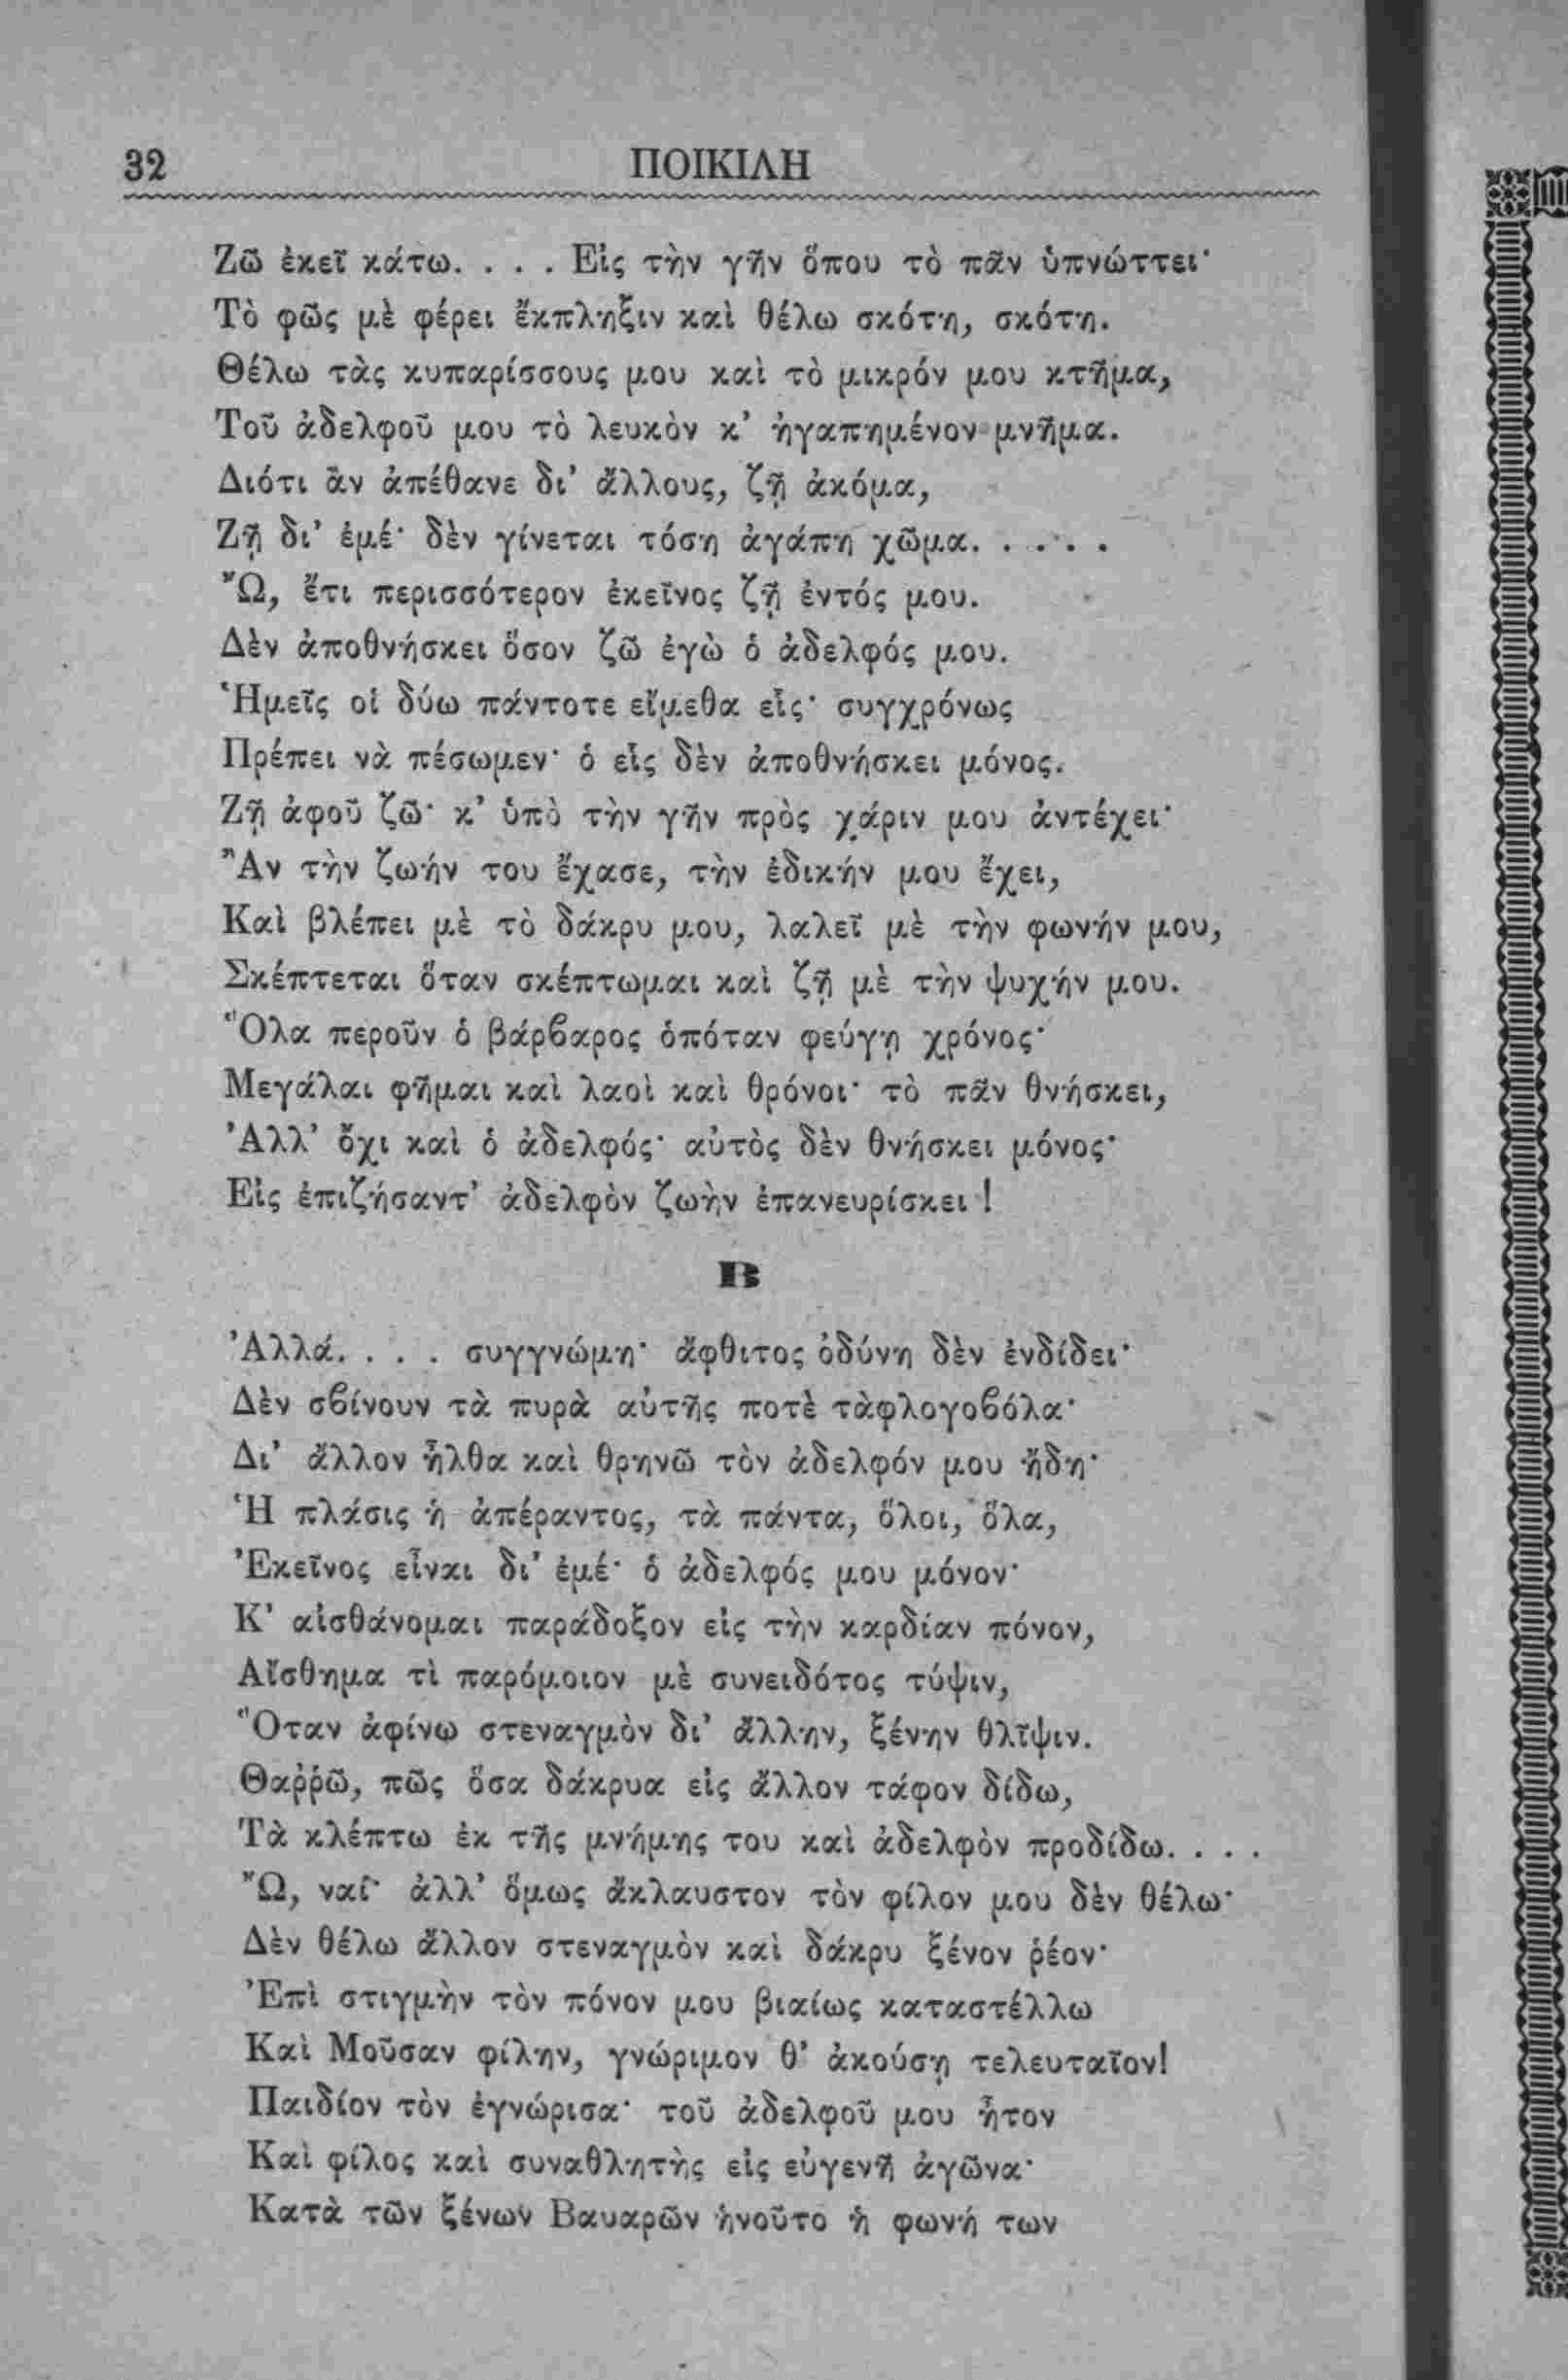 32 ΠΟΙΚΙΛΗ
Ζῶ ἐκεῖ κάτω. . . . Εἰς τὴν γῆν ὅπου τὸ πᾶν ὑπνώττει·
Τὸ φῶς μὲ φέρει ἔκπληξιν καὶ θέλω σκότη, σκότη.
Θέλω τὰς κυπαρίσσους μου καὶ τὸ μικρόν μου κτῆμα,
Τοῦ ἀδελφοῦ μου τὸ λευκὸν κ’ ἠγαπημένον μνῆμα.
Διότι ἂν ἀπέθανε δι’ ἄλλους, ζῇ ἀκόμα,
Ζῇ δι’ ἐμέ· δὲν γίνεται τόση ἀγάπη χῶμα. . . . .
Ὢ, ἔτι περισσότερον ἐκεῖνος ζῇ ἐντός μου.
Δὲν ἀποθνήσκει ὅσον ζῶ ἐγὼ ὁ ἀδελφός μου.
Ἡμεῖς οἱ δύω πάντοτε εἴμεθα εἷς· συγχρόνως
Πρέπει νὰ πέσωμεν· ὁ εἷς δὲν ἀποθνήσκει μόνος.
Ζῇ ἀφοῦ ζῶ· κ’ ὑπὸ τὴν γῆν πρὸς χάριν μου ἀντέχει·
Ἂν τὴν ζωήν του ἔχασε, τὴν ἐδικήν μου ἔχει,
Καὶ βλέπει μὲ τὸ δάκρυ μου, λαλεῖ μὲ τὴν φωνήν μου,
Σκέπτεται ὅταν σκέπτωμαι καὶ ζῇ μὲ τὴν ψυχήν μου.
Ὅλα περοῦν ὁ βάρϐαρος ὁπόταν φεύγῃ χρόνος·
Μεγάλαι φῆμαι καὶ λαοὶ καὶ θρόνοι· τὸ πᾶν θνήσκει,
Ἀλλ’ ὄχι καὶ ὁ ἀδελφός· αὐτὸς δὲν θνήσκει μόνος·
Εἰς ἐπιζήσαντ’ ἀδελφὸν ζωὴν ἐπανευρίσκει !
Β
Ἀλλά. . . . συγγνώμη· ἄφθιτος ὀδύνη δὲν ἐνδίδει·
Δὲν σϐίνουν τὰ πυρὰ αὐτῆς ποτὲ τὰφλογοϐόλα·
Δι’ ἄλλον ἦλθα καὶ θρηνῶ τὸν ἀδελφόν μου ἤδη·
Ἡ πλάσις ἡ ἀπέραντος, τὰ πάντα, ὅλοι, ὅλα,
Ἐκεῖνος εἶναι δι’ ἐμέ· ὁ ἀδελφός μου μόνον·
Κ’ αἰσθάνομαι παράδοξον εἰς τὴν καρδίαν πόνον,
Αἴσθημα τὶ παρόμοιον μὲ συνειδότος τύψιν,
Ὅταν ἀφίνῳ στεναγμὸν δι’ ἄλλην, ξένην θλῖψιν.
Θαῤῥῶ, πῶς ὅσα δάκρυα εἰς ἄλλον τάφον δίδω,
Τὰ κλέπτω ἐκ τῆς μνήμης του καὶ ἀδελφὸν προδίδω. . . .
Ὢ, ναί· ἀλλ’ ὅμως ἄκλαυστον τὸν φίλον μου δὲν θέλω·
Δὲν θέλω ἄλλον στεναγμὸν καὶ δάκρυ ξένον ῥέον·
Ἐπὶ στιγμὴν τὸν πόνον μου βιαίως καταστέλλω
Καὶ Μοῦσαν φίλην, γνώριμον θ’ ἀκούσῃ τελευταῖον!
Παιδίον τὸν ἐγνώρισα· τοῦ ἀδελφοῦ μου ἦτον
Καὶ φίλος καὶ συναθλητὴς εἰς εὐγενῆ ἀγῶνα·
Κατὰ τῶν ξένων Βαυαρῶν ἡνοῦτο ἡ φωνή των